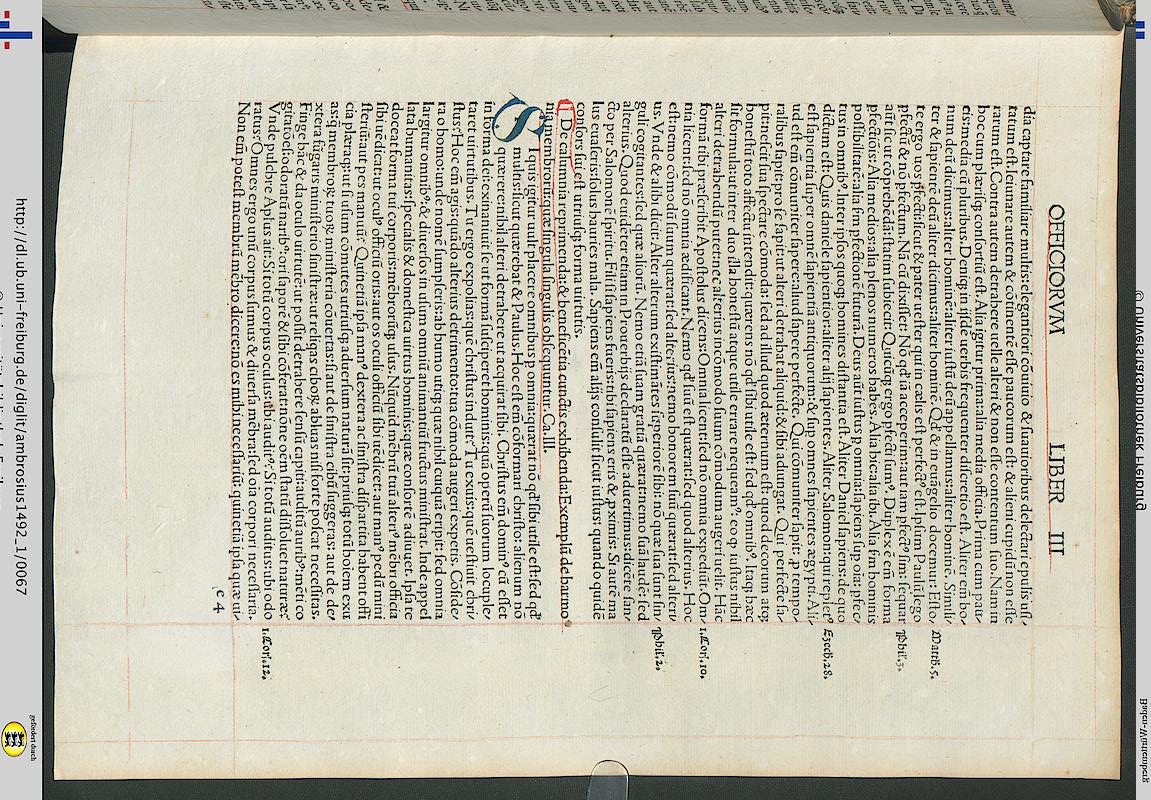 OFFICIORVM LIBER III
dia captare familiare multis: elegantiori cōuiuio & suauioribus delectari epulis usi/
tatum est. Ieiunare autem & cōtinentē esse paucorum est: & alieni cupidū non esse
rarum est. Contra autem detrahere uelle alteri & non esse contentum suo. Nam in
hoc cum plærisq; consortiū est. Alia igitur prima: alia media officia. Prima cum pau/
cis: media cū pluribus. Deniq; in iisdē uerbis frequenter discretio est. Aliter em̄ bo/
num deū dicimus: aliter hominē: aliter iustū deū appellamus: aliter hominē. Simili/
ter & sapientē deū aliter dicimus: aliter hominē. Qd & in euāgelio docemur: Esto/
te ergo uos p̄fecti: sicut & pater uester qui in cælis est perfectꝰ est. Ipsum Paulū lego
p̄fectū & nō p̄fectum. Nā cū dixisset: Nō qd iā acceperim: aut iam p̄fectꝰ sim: sequor
aūt si cōprehēdā: statim subiecit: Quicūq; ergo p̄fecti sumꝰ. Duplex ē em̄ forma
p̄fectiōis: Alia medios: alia plenos numeros habēs. Alia hic: alia ibi. Alia s̄m hominis
possibilitatē: alia s̄m p̄fectionē futurā. Deus aūt iustus p omnia: sapiens sup oīa: p̄fec/
tus in omnibꝰ. Inter ipsos quoq; homines distantia est. Aliter Daniel sapiens: de quo
dictum est: Quis daniele sapientior: aliter alii sapientes. Aliter Salomon: qui repletꝰ
est sapientia super omnē sapientiā antiquorum: & sup omnes sapientes ægypti. Ali/
ud est em̄ cōmuniter sapere: aliud sapere perfecte. Qui cōmuniter sapit: p tempo/
ralibus sapit: pro se sapit: ut alteri detrahat aliquid: & sibi adiungat. Qui perfecte sa/
pit: nescit sua spectare cōmoda: sed ad illud quod æternum est: quod decorum atq;
honestū ē toto affectu intendit: quærens nō qd sibi utile est: sed qd omnibꝰ. Itaq; hæc
sit formula: ut inter duo illa honestū atque utile errare nequeamꝰ: eo q iustus nihil
alteri detrahendum putet: nec alterius incōmodo suum cōmodum augeri uelit. Hāc
formā tibi præscribit Apostolus dicens: Omnia licent: sed nō omnia expediūt. Om/
nia licent: sed nō omnia ædificant. Nemo qd suū est quærat: sed quod alterius. Hoc
est: nemo cōmodū suum quærat sed alterius: nemo honorem suū quærat: sed alteri/
us. Vnde & alibi dicit: Alter alterum existimātes superiorē sibi: nō quæ sua sunt sin/
guli cogitantes: sed quæ aliorū. Nemo etiā suam gratiā quærat: nemo suā laudē: sed
alterius. Quod euidenter etiam in Prouerbiis declaratū esse aduertimus: dicēte san/
cto per Salomonē spiritu: Fili si sapiens eris tibi sapiens eris & p̄ximis. Si autē ma
lus euaseris: solus hauries mala. Sapiens em̄ aliis consulit sicut iustus: quando quidē
consors sui est utriusq; forma uirtutis.
De calumnia reprimenda: & beneficētia cunctis exhibenda: Exemplū de harmo
nia membrorū: quæ singula singulis obsequuntur. Ca. III.
SI quis igitur uult placere omnibus p omnia: quærat nō qd sibi utile est: sed qd
multis: sicut quærebat & Paulus. Hoc est em̄ cōformari christo: alienum nō
quærere: nihil alteri detrahere ut acquirat sibi. Christus em̄ dominꝰ cū esset
in forma dei: exinaniuit se ut formā susciperet hominis: quā operū suorum locuple/
taret uirtutibus. Tu ergo expolias: quē christus induit? Tu exuis: que uestiuit chri/
stus? Hoc em̄ agis: quādo alterius detrimento: tua cōmoda augeri expetis. Cōside/
ra o homo: unde nomē sumpseris: ab humo utiq; que nihil cuiquā eripit: sed omnia
largitur omnibꝰ: & diuersos in usum omniū animantiū fructus ministrat. Inde appel
lata humanitas: specialis & domestica uirtus hominis: quæ consortē adiuuet. Ipsa te
doceat forma tui corporis: mēbrorūq; usus. Nūquid mēbrū tuū alterꝰ mēbri officia
sibi uēdicat: ut oculꝰ officiū oris: aut os oculi officiū sibi uēdicet: aut manꝰ pedū mini
steriū: aut pes manuū? Quinetiā ipsæ manꝰ dextera ac sinistra dispartita habent offi
cia plæraq;: ut si usum cōmutes utriusq; aduersum naturā sit: priusq; totū hoīem exu
as: q̄ membroꝝ tuoꝝ misteria cōuertas: si aut de sinistra cibū suggeras: aut de de
xtera fūgaris ministerio sinistræ: ut reliqas ciboꝝ abluas nisi forte poscat necessitas.
Finge hāc & da oculo uirtutē: ut possit detrahere sensū capiti: auditū auribꝰ: mēti co
gitatōes: odoratū naribꝰ: ori saporē & sibi cōferat: nōne oēm statū dissoluet naturæ?
Vnde pulchre Apl̄us ait: Si totū corpus oculus: ubi auditꝯ? Si totū auditus: ubi odo
ratus? Omnes ergo unū corpus sumus & diuersa mēbra: sed oīa corpori necessaria.
Non em̄ potest membrū mēbro dicere: nō es mihi necessariū: quinetiā ipsa quæ ui/
Matth. 5.
Phil. 3.
Ezech. 28.
1. Cor. 10.
Phil. 2.
1. Cor. 12.
e 4
http://dl.ub.uni-freiburg.de/diglit/ambrosius1492_1/0067
© Universitätsbibliothek Freiburg
gefördert durch